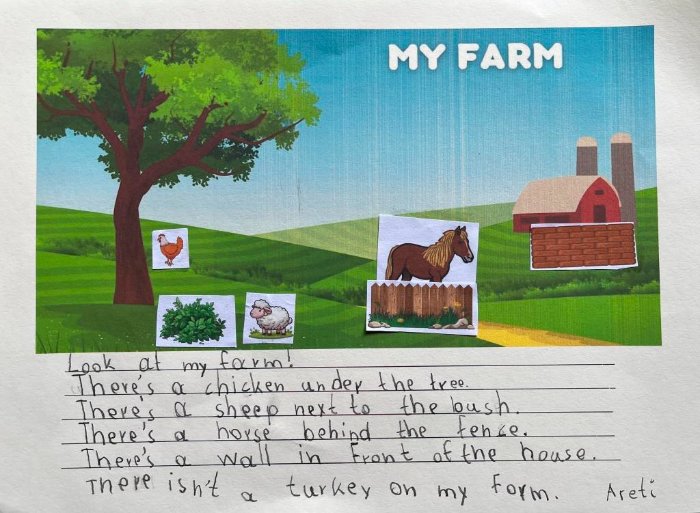 MY FARM
Look at my farm!
There's a chicken under the tree.
There's a sheep next to the bush.
There's a horse behind the fence.
There's a wall in front of the house.
There isn't a turkey on my form. Areti